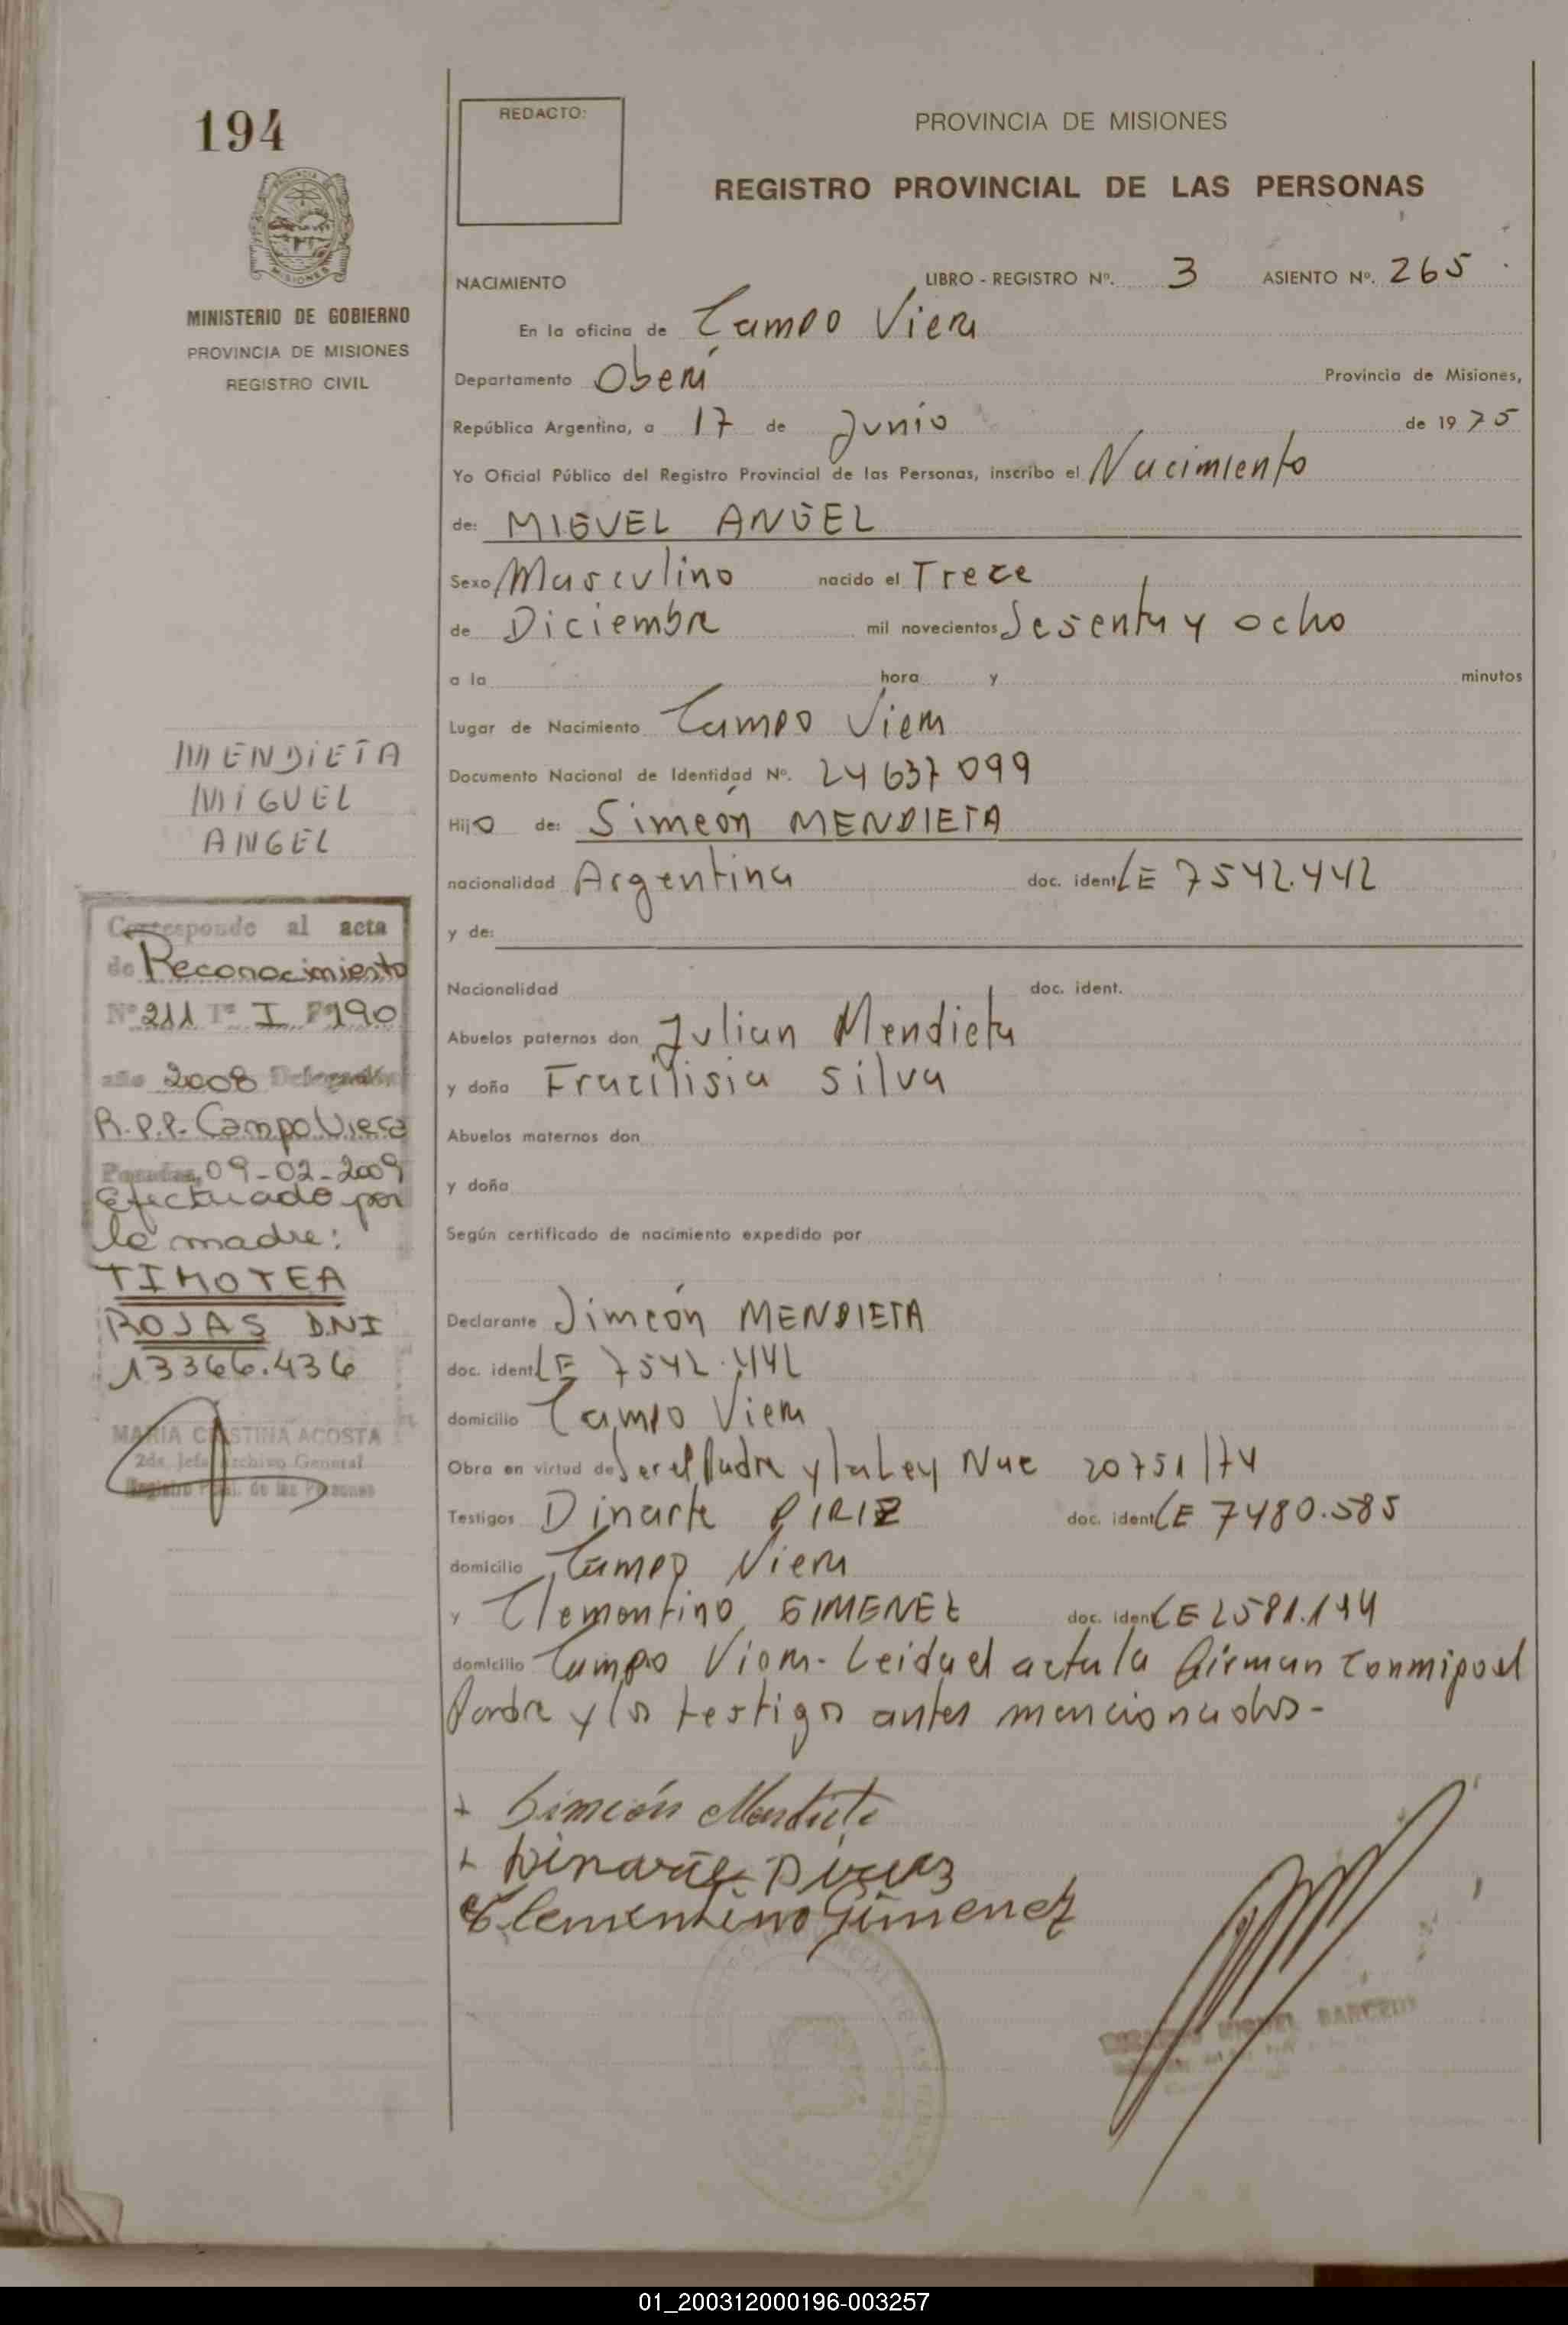 194
MISIONES
MINISTERIO DE GOBIERNO
PROVINCIA DE MISIONES
REGISTRO CIVIL
MENDIETA
MIGUEL
ANGEL
Corresponde al acta
de Reconocimiento
Nº 211 Tº I Fº 190
año 2008 Delegación
R.P.P. Campo Viera
Posadas, 09-02-2009
Efectuado por
la madre:
TIMOTEA
ROJAS DNI
13366.436
MARIA CRISTINA ACOSTA
2da. Jefa Archivo General
Registro Pcial. de las Personas
REDACTO:
PROVINCIA DE MISIONES
REGISTRO PROVINCIAL DE LAS PERSONAS
NACIMIENTO LIBRO - REGISTRO Nº. 3 ASIENTO Nº. 265
En la oficina de Campo Viera
Departamento Oberá Provincia de Misiones,
República Argentina, a 17 de Junio de 1975
Yo Oficial Público del Registro Provincial de las Personas, inscribo el Nacimiento
de: MIGUEL ANGEL
Sexo Masculino nacido el Trece
de Diciembre mil novecientos Sesenta y ocho
a la hora y minutos
Lugar de Nacimiento Campo Viera
Documento Nacional de Identidad Nº. 24637099
Hijo de: Simeón MENDIETA
nacionalidad Argentina doc. ident. LE 7542.442
y de:
Nacionalidad doc. ident.
Abuelos paternos don Julian Mendieta
y doña Silva
Abuelos maternos don
y doña
Según certificado de nacimiento expedido por
Declarante Simeón MENDIETA
doc. ident. LE 7542.442
domicilio Campo Viera
Obra en virtud de Ser el Padre y la Ley Nac 20751/74
Testigos Dinarte PIRIZ doc. ident. LE 7480.585
domicilio Campo Viera
y Clementino GIMENEZ doc. ident. LE 2581.144
domicilio Campo Viera - Leida el acta la firman conmigo el
Padre y los testigos antes mencionados -
+ Simeón Mendieta
+ Dinarte
Clementino Gimenez
MIGUEL
01_200312000196-003257